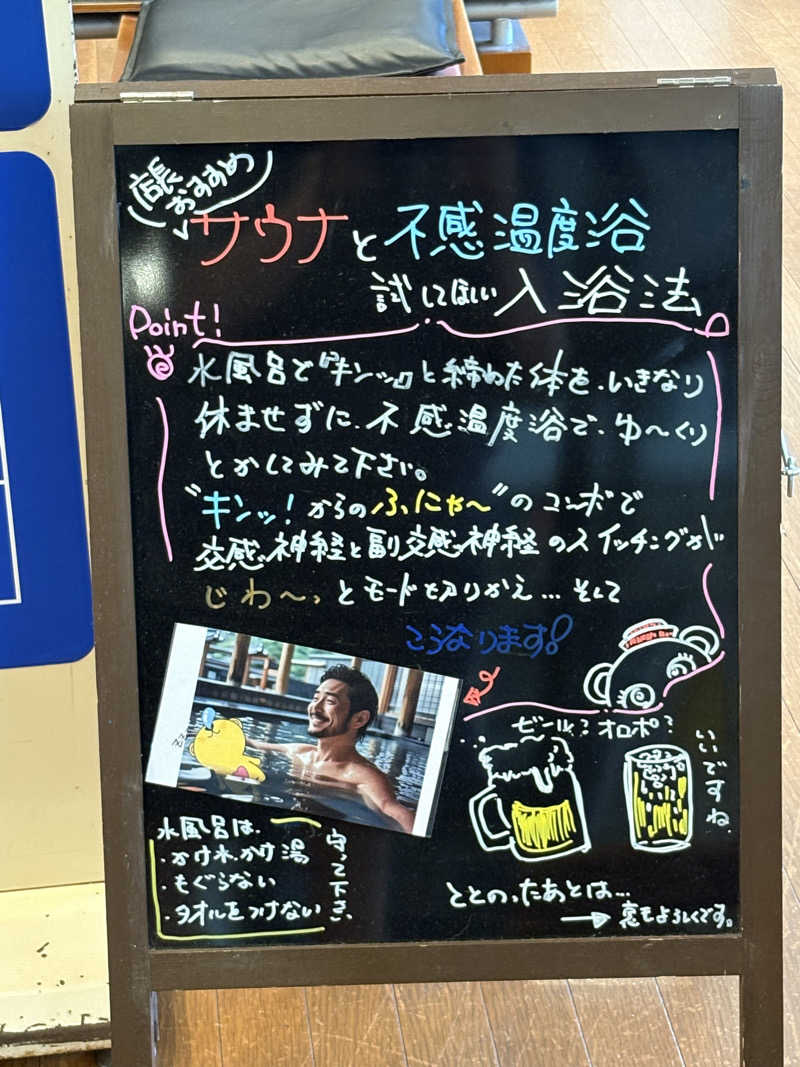 店長
おすすめ
サウナと不感温度浴
試してほしい入浴法
Point!
水風呂で『キンッッ』と締めた体を、いきなり
休ませずに、不感温度浴で、ゆ〜くり
とかしてみて下さい。
"キンッ!からのふにゃ〜"のコンボで
交感神経と副交感神経のスイッチングが
じわ〜っとモードきりかえ…そして
こうなります!
ビール?オロポ?
いいですね。
水風呂は、
・かけ水、かけ湯
・もぐらない
・タオルをつけない
守って下さい、
ととのったあとは…
→裏もよろしくです。